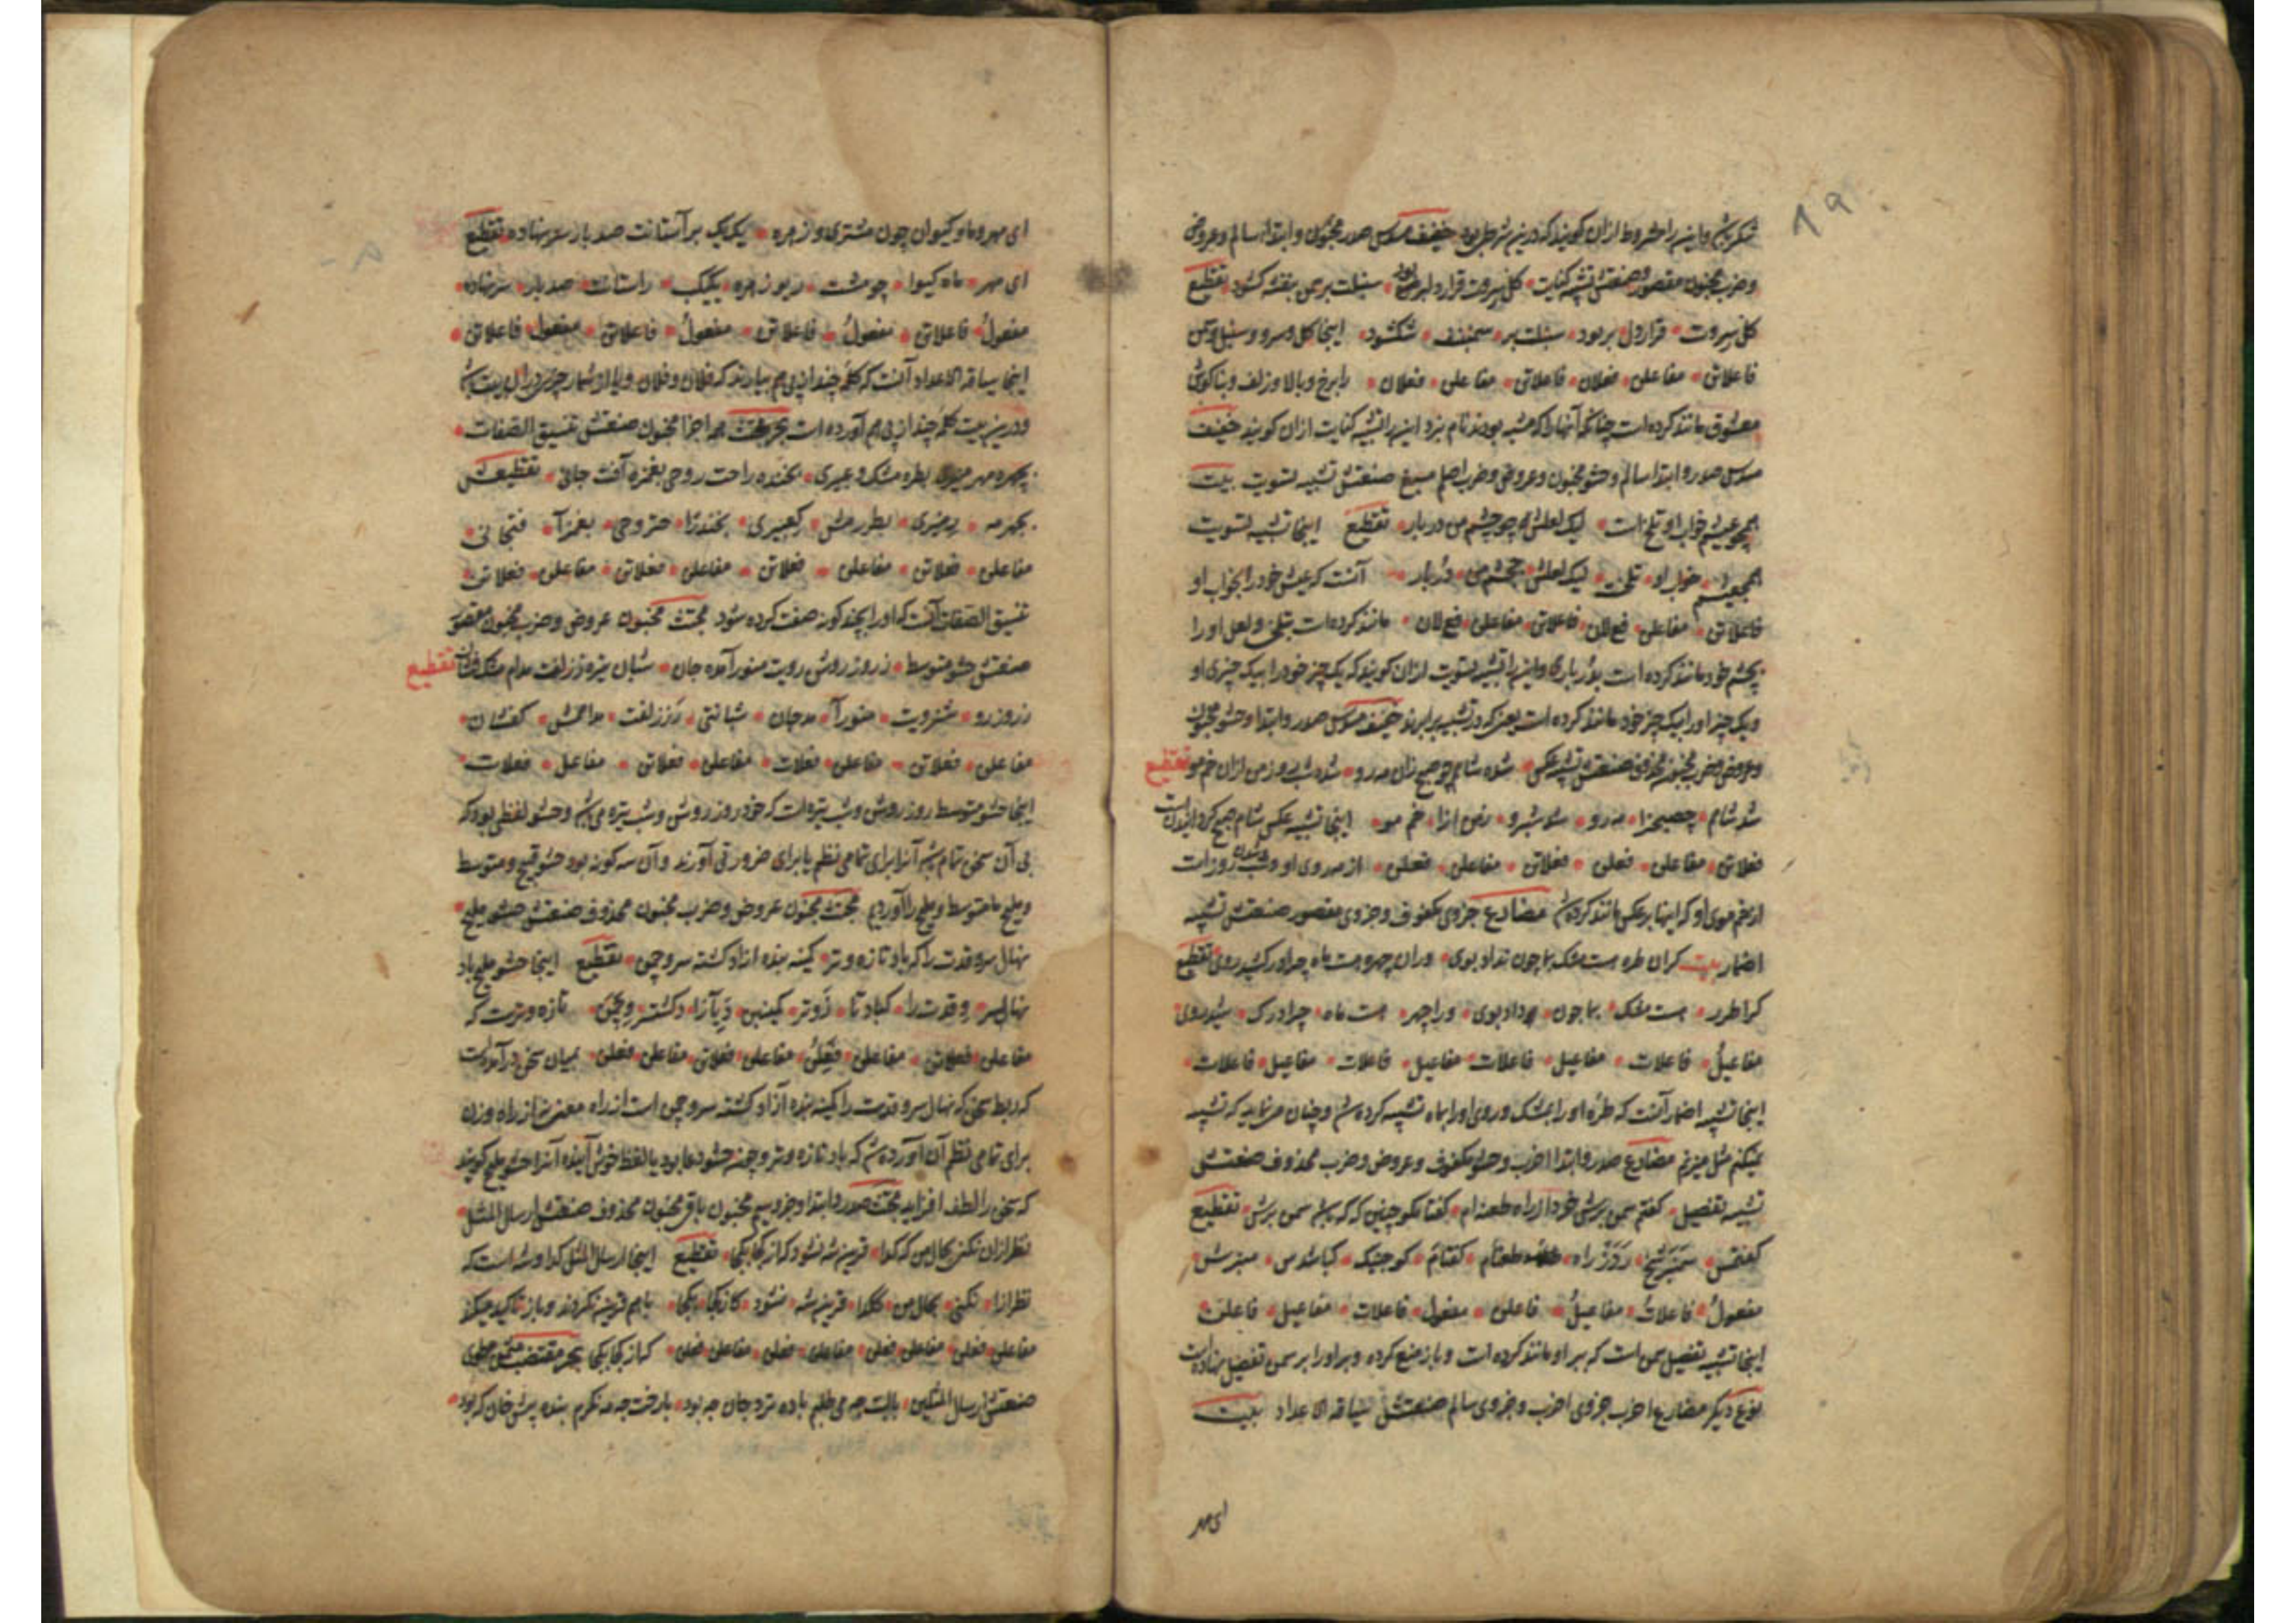 ۸۹
شکر باشد و این را مشروط ازان گویند که درین شرطی بود خفیف مسدس صدر مخبون و ابتدا سالم و عروض
و ضرب مخبون مقصور صنعتش تشبیه کنایت گل سروت قرار دل بربود سنبلت بر سمن بنفشه کشود تقطیع
گل سروت قرار دل بربود سنبلت بر سمن بنفـ شکشود اینجا گل و سرو و سنبل و سمن
فاعلاتن مفاعلن فعلان فاعلاتن مفاعلن فعلان را برخ و بالا و زلف و بناگوش
معشوق مانند کرده است چنانکه آنها را که مشبه بودند نام نبرد این را تشبیه کنایت ازان گویند خفیف
مسدس صدر و ابتدا سالم و حشو مخبون و عروض و ضرب اصلم مسبغ صنعتش تشبیه تسویت بیت
همچو عیشم خواب او تلخ است لیک لعلش چو چشم من دربار تقطیع اینجا تشبیه تسویت
همچعیشم خواب او تلخـ لیک لعلش چچشم من دربار آنست که عیش خود را بخواب او
فاعلاتن مفاعلن فع لان فاعلاتن مفاعلن فع لان مانند کرده است بتلخی و لعل او را
بچشم خود مانند کرده است بدر باری و این را تشبیه تسویت ازان گویند که یک چیز خود را بیک چیزی او
و یک چیز او را بیک چیز خود مانند کرده است یعنی که در تشبیه برابرند خفیف مسدس صدر و ابتدا و حشو مخبون
و عروض و ضرب مخبون محذوف صنعتش تشبیه عکس شده شامم چو صبح زان مه رو شده شب روز من ازان خم مو تقطیع
شد شامم چصبحزا مه رو شد شبرو زمن ازا خم مو اینجا تشبیه عکس شام صبح کردانیدن است
فعلاتن مفاعلن فعلن فعلاتن مفاعلن فعلن از مه روی او و شب روز است
از خم موی او که اینها بر عکس مانند کرده شد مضارع جزوی مکفوف و جزوی مقصور صنعتش تشبیه
اضمار بیت گران طره هست مشک بما چون نداد بوی وران چهره هست ماه چرا در کشید روی تقطیع
گرا طرر هست مشک بما چون نداد بوی ورا چهر هست ماه چرا درک شید روی
مفاعیل فاعلات مفاعیل فاعلات مفاعیل فاعلات مفاعیل فاعلات
اینجا تشبیه اضمار آنست که طره او را بمشک و روی او را بماه تشبیه کرده شد و چنان می نماید که تشبیه
نمیکنم مثل میزنم مضارع صدر و ابتدا اخرب و حشو مکفوف و عروض و ضرب محذوف صنعتش
تشبیه تفضیل گفتم سمن برش خرد از راه طعنه ام گفتا مگو چنین که که باشد سمن برش تقطیع
مفعول فاعلات مفاعیل فاعلن مفعول فاعلات مفاعیل فاعلن
اینجا تشبیه تفضیل سمن است که بر او مانند کرده است و باز منع کرده و بر او را بر سمن تفضیل نهاده است
نوع دیگر مضارع اخرب جزوی اخرب و جزوی سالم صنعتش سیاقه الاعداد بیت
ای مهر
ای مهر و ماه و کیوان چون مشتری و زهره یک یک بر آستانت صد بار سر نهاده تقطیع
ای مهر ماه کیوا چو مشت ری و زهره یکیک بر استانت صد بار سر نهاده
مفعول فاعلاتن مفعول فاعلاتن مفعول فاعلاتن مفعول فاعلاتن
اینجا سیاقه الاعداد آنست که کلمه چند از پی هم بیارند که فلان و فلان و یا از شمار چیزی دران بیت باشد
و درین بیت کلمه چند از پی هم آورده است بحر مجتث همه اجزا مخبون صنعتش تنسیق الصفات
بچهره مهر منیری بطره مشک و عبیری بخنده راحت روحی بغمزه آفت جانی تقطیعش
بچهره مه رمنیری بطره مش کعبیری بخندرا حتروحی بغمزآ فتجانی
مفاعلن فعلاتن مفاعلن فعلاتن مفاعلن فعلاتن مفاعلن فعلاتن
تنسیق الصفات آنست که او را بچند گونه صفت کرده شود مجتث مخبون عروض و ضرب مخبون مقصور
صنعتش حشو متوسط ز روز روشن رویت منور آمده جان شبان تیره ز زلفت مدام مشک فشان تقطیع
زروزرو شنرویت منورآ مدجان شبانتی رززلفت مدامش کفشان
مفاعلن فعلاتن مفاعلن فعلات مفاعلن فعلاتن مفاعلن فعلات
اینجا حشو متوسط روز روشن و شب تیره است که خود روز روشن و شب تیره می باشد و حشو لفظی بود که
بی آن سخن تمام باشد آنرا برای تمامی نظم یا برای ضرورتی آورند و آن سه گونه بود حشو قبیح و متوسط
و ملیح ما متوسط و ملیح را آوردیم مجتث مخبون عروض و ضرب مخبون محذوف صنعتش حشو ملیح
نهال سرو قدت را که باد تازه و تر کمینه بنده آزاد گشته سرو چمن تقطیع اینجا حشو ملیح باد
نهال سر وقدت را کباد تا زوتر کمینبن دیآزا دگشتسر وچمن تازه و ترست که
مفاعلن فعلاتن مفاعلن فعلن مفاعلن فعلاتن مفاعلن فعلن میان سخن در آمده است
که ربط سخن که نهال سرو قدت را کمینه بنده آزاد گشته سرو چمن است از راه معنی نه از راه وزن
برای تمامی نظم آن آورده شد که باد تازه و تر و چنین حشو دعا بود یا لفظ خوش آینده آنرا حشو ملیح گویند
که سخن را لطف افزاید مجتث صدر و ابتدا و جزو سیم مخبون باقی مخبون محذوف صنعتش ارسال المثل
نظر ازان نکنی بحال من که گدا قرین شه نشود که از کجا بکجا تقطیع اینجا ارسال المثل گدا و شه است که
نظر ازا نکنی بحال من کگدا قرین شه نشود کازکجا بکجا باهم قرینه نکردند و باز تاکید میکند
مفاعلن فعلن مفاعلن فعلن مفاعلن فعلن مفاعلن فعلن که از کجا بکجا بحر مقتضب مثمن مطوی
صنعتش ارسال المثلین بالبت چه می طلبم باده نزد جان چه بود با رخت چه مه نگرم بنده پیش خان که بود